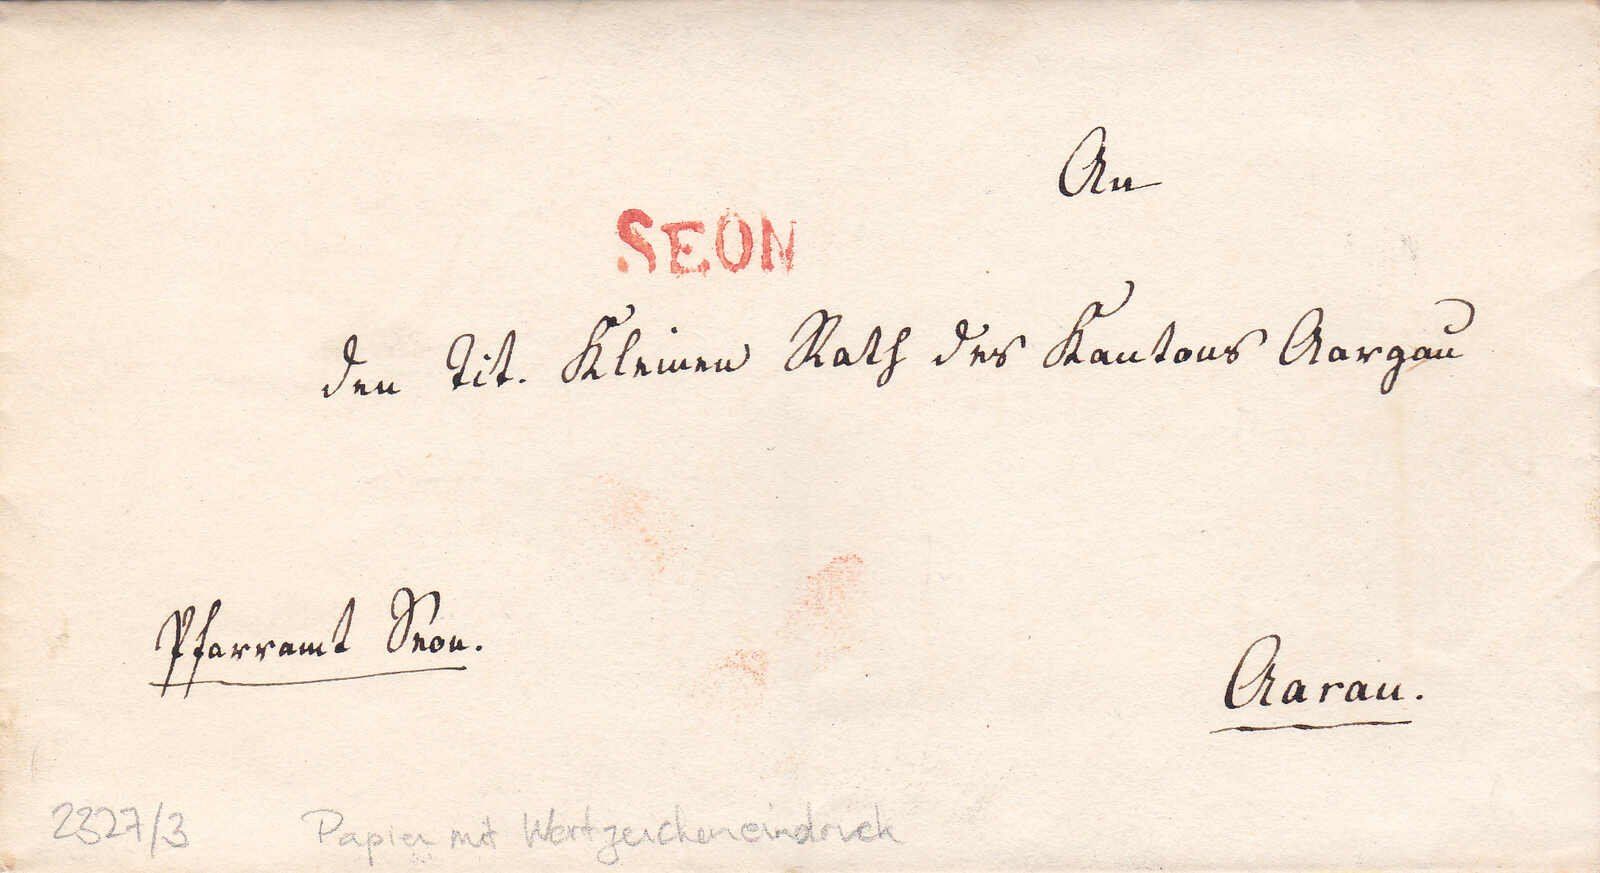 An
SEON
den Tit. Kleinen Rath des Kantons Aargau
Pfarramt Seon.
Aarau.
2327/3 Papier mit Wertzeicheneindruck